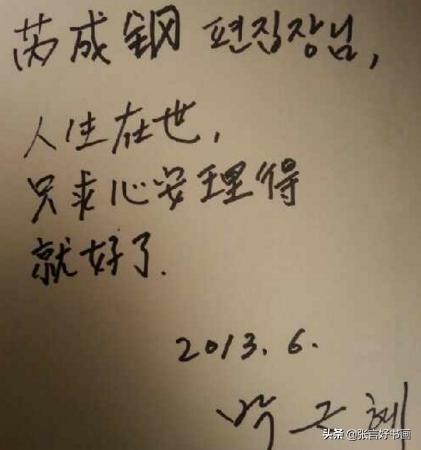 芮成钢 편집장님,
人生在世,
只求心安理得
就好了.
2013. 6.
박근혜
头条 @张言好书画